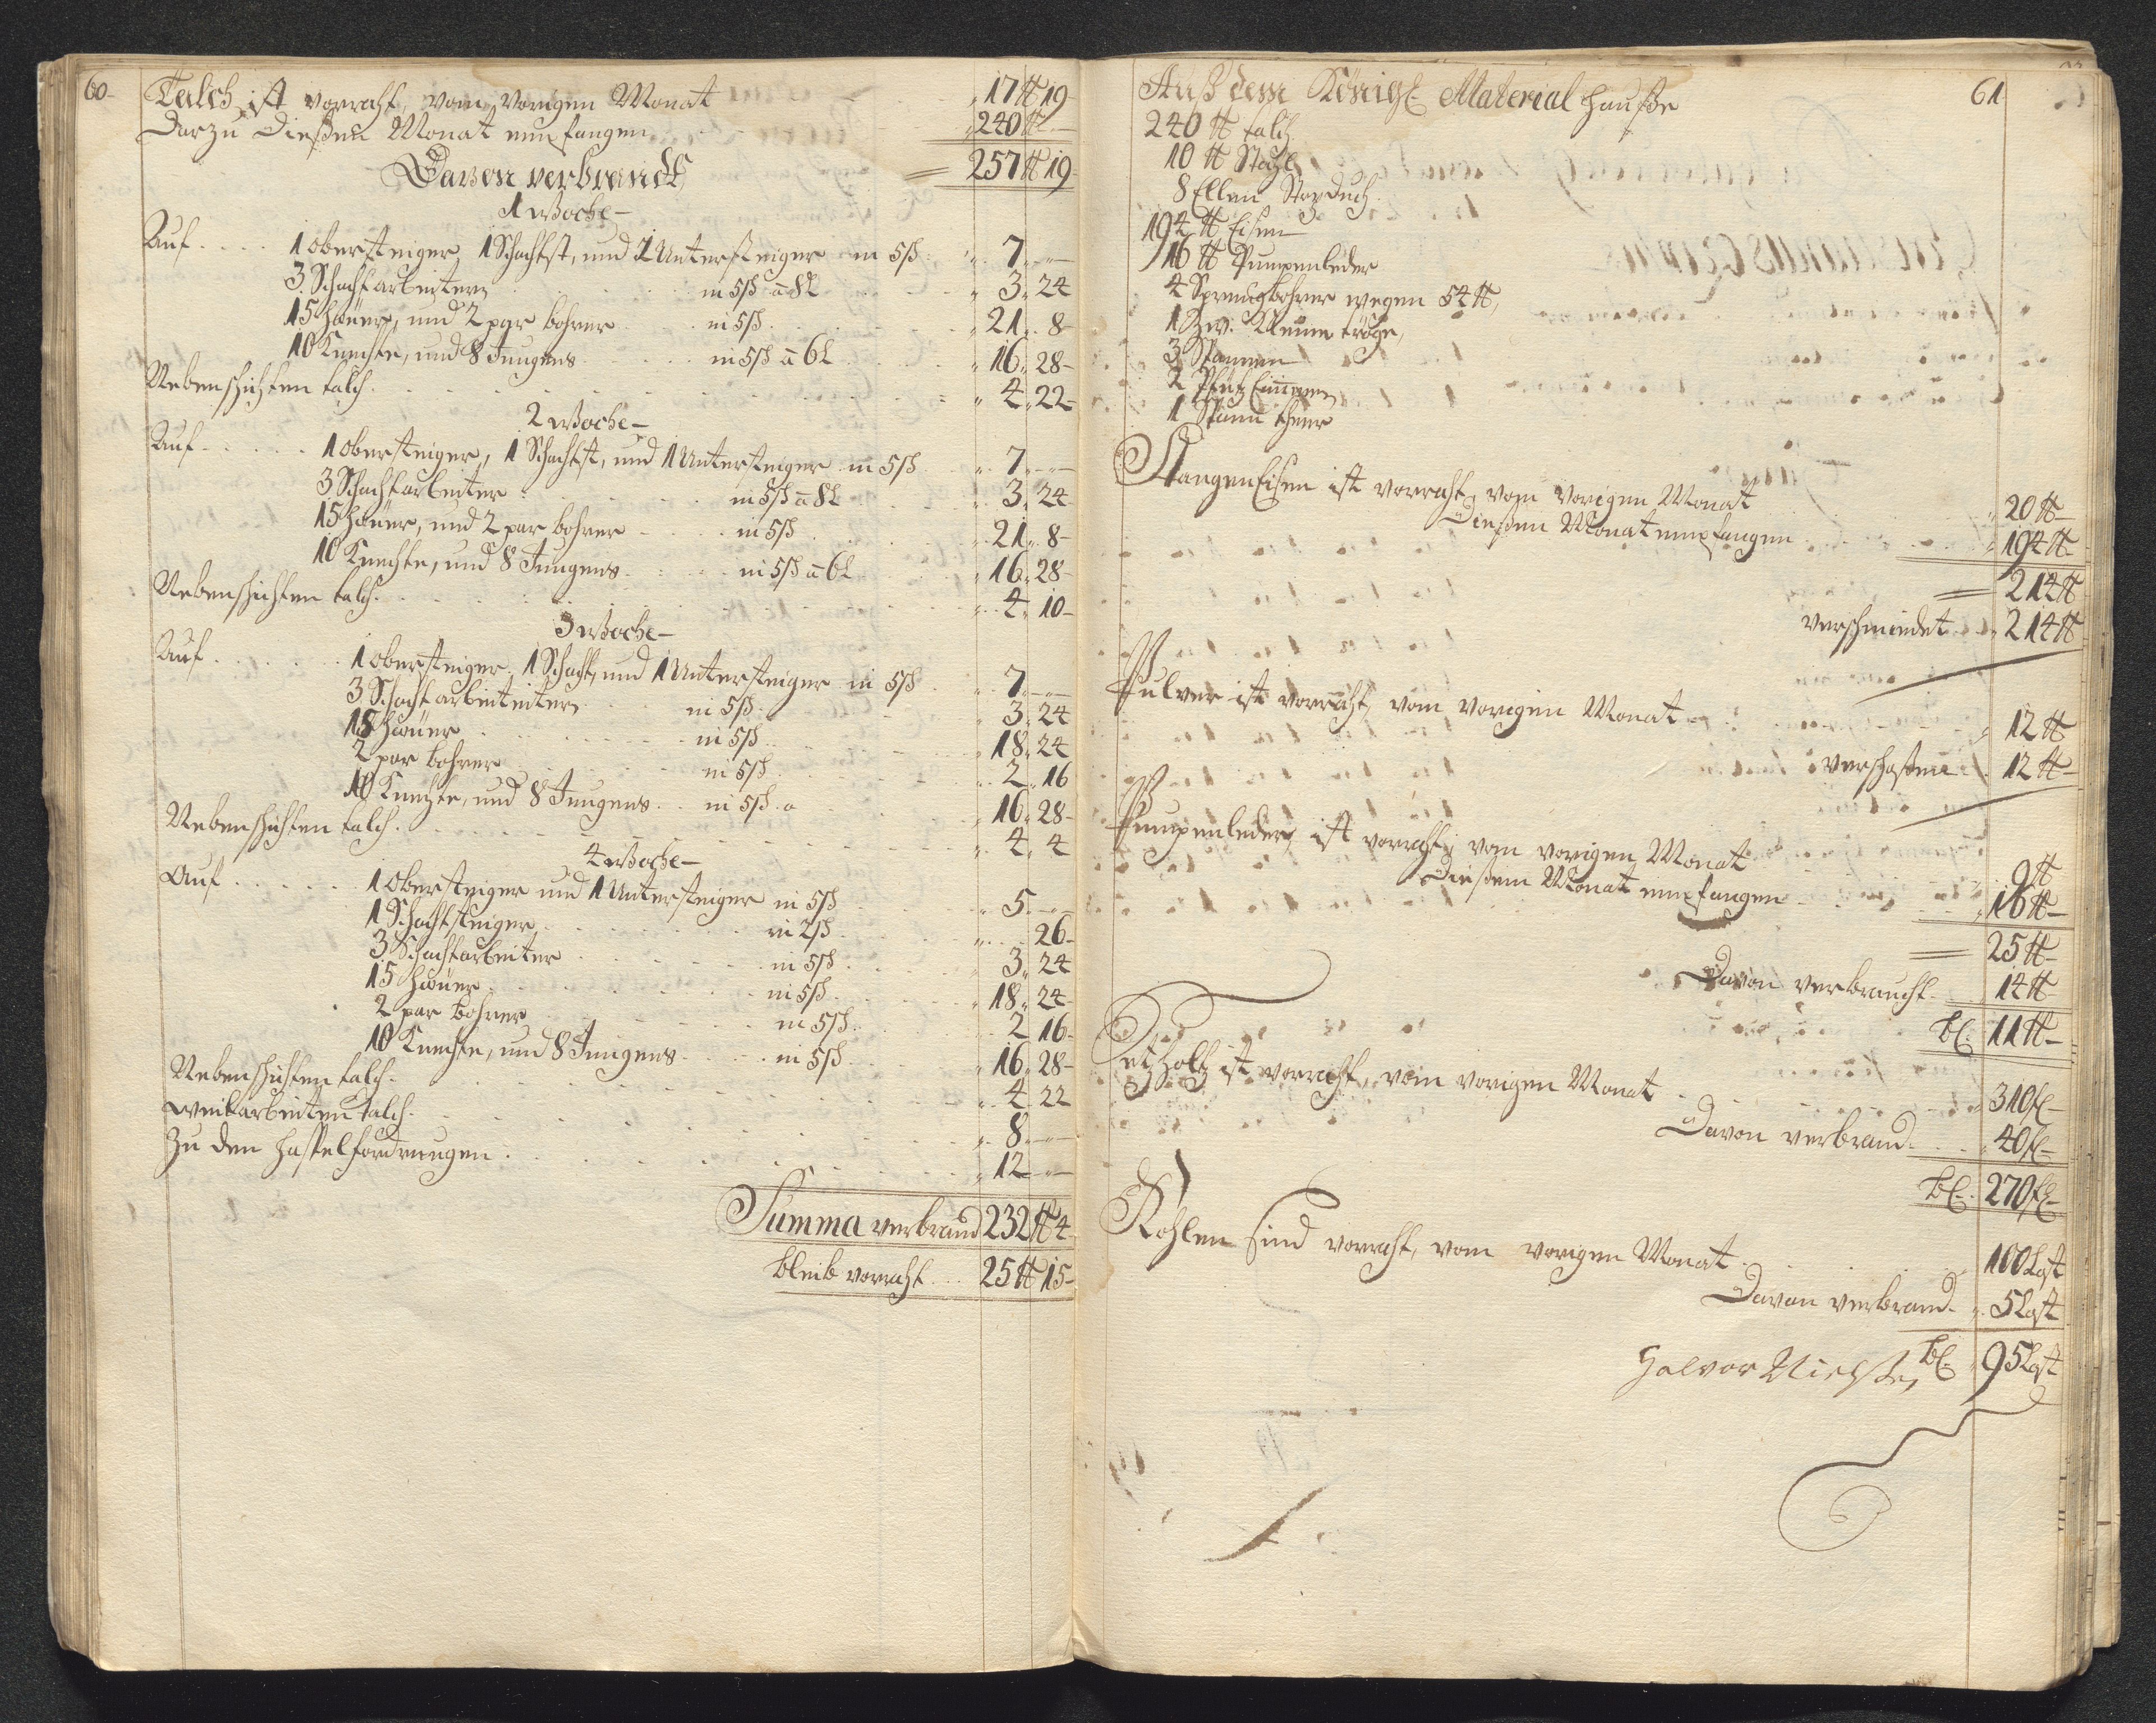 60
Talch ist vorraht, vom vorigen Monat 17 ℔ 19
Darzu Dießen Monat empfangen 240 ℔
257 ℔ 19
Davon verbraucht
1 Woche
Auf 1 obersteiger, 1 Schachtst, und 1 Untersteiger in 5ß 7
3 Schachtarbeitern in 5ß a 8L 3 24
15 Heüer, und 2 par bohrer in 5ß 21 8
10 Knechte, und 8 Jungens in 5ß a 6L 16 28
Nebenschichten talch 4 22
2 Woche
Auf 1 obersteiger, 1 Schachtst, und 1 Untersteiger in 5ß 7
3 Schachtarbeiter in 5ß a 8L 3 24
15 Heüer, und 2 par bohrer in 5ß 21 8
10 Knechte, und 8 Jungens in 5ß a 6L 16 28
Nebenschichten talch 4 10
3 Woche
Auf 1 obersteiger, 1 Schacht, und 1 Untersteiger in 5ß 7
3 Schachtarbeiteiter in 5ß 3 24
15 Heüer in 5ß 18 24
2 par bohrer in 5ß 2 16
10 Knechte, und 8 Jungens in 5ß a 16 28
Nebenschichten talch 4 4
4 Woche
Auf 1 obersteiger und 1 Untersteiger in 5ß 5
1 Schachtsteiger in 2ß 26
3 Schachtarbeiter in 5ß 3 24
15 Heüer in 5ß 18 24
2 par bohrer in 5ß 2 16
10 Knechte, und 8 Jungens in 5ß 16 28
Nebenschichten talch 4 22
Weilarbeiten talch 8
Zu den Haspelfordrungen 12
Summa verbrand 232 ℔ 4
bleib vorraht 25 ℔ 15
61
Auß dem Königl Material Hauße
240 ℔ talch
10 ℔ Stahl
8 Ellen
194 ℔ Eisen
16 ℔ Pumpenleder
4 Sprengbohrer wegen 54 ℔,
1 tröge,
3 Spannen
2
1 theer
StangenEisen ist vorraht, vom vorigen Monat 20 ℔
Dießen Monat empfangen 194 ℔
214 ℔
verschmiedet 214 ℔
Pulver ist vorraht, vom vorigen Monat 12 ℔
verschoßen 12 ℔
Pumpenleder, ist vorraht, vom vorigen Monat 9 ℔
Dießem Monat empfangen 16 ℔
25 ℔
Davon verbraucht 14 ℔
bl: 11 ℔
Setzholtz ist vorraht, vom vorigen Monat 310 fl
Davon verbrand 40 fl
bl: 270 fl
Kohlen sind vorraht, vom vorigen Monat 100 Last
Davon verbrand 5 Last
bl: 95 Last
Halvor